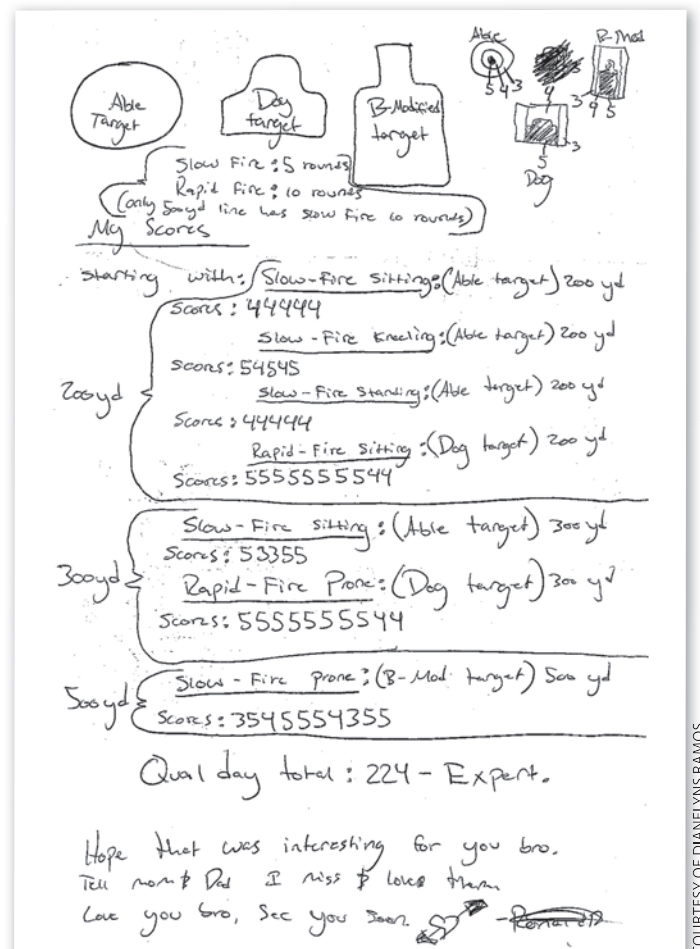 Able
B-Mod
Able
Target
Dog
target
B-Modified
target
5 4 3
4
3 4 5
3
5
Dog
Slow Fire: 5 rounds
Rapid Fire: 10 rounds
(only 500yd line has slow Fire 10 rounds)
My Scores
Starting with: Slow-Fire Sitting: (Able target) 200 yd
Scores: 44444
Slow-Fire Kneeling: (Able target) 200 yd
Scores: 54545
Slow-Fire Standing: (Able target) 200 yd
200yd
Scores: 44444
Rapid-Fire Sitting: (Dog target) 200 yd
Scores: 5555555544
Slow-Fire Sitting: (Able target) 300 yd
Scores: 53355
300yd
Rapid-Fire Prone: (Dog target) 300 yd
Scores: 5555555544
Slow-Fire Prone: (B-Mod target) 500 yd
500yd
Scores: 3545554355
Qual day total: 224 - Expert.
Hope that was interesting for you bro.
Tell mom & Dad I miss & love them
Love you bro, See you Soon.
COURTESY OF DIANELYNS RAMOS